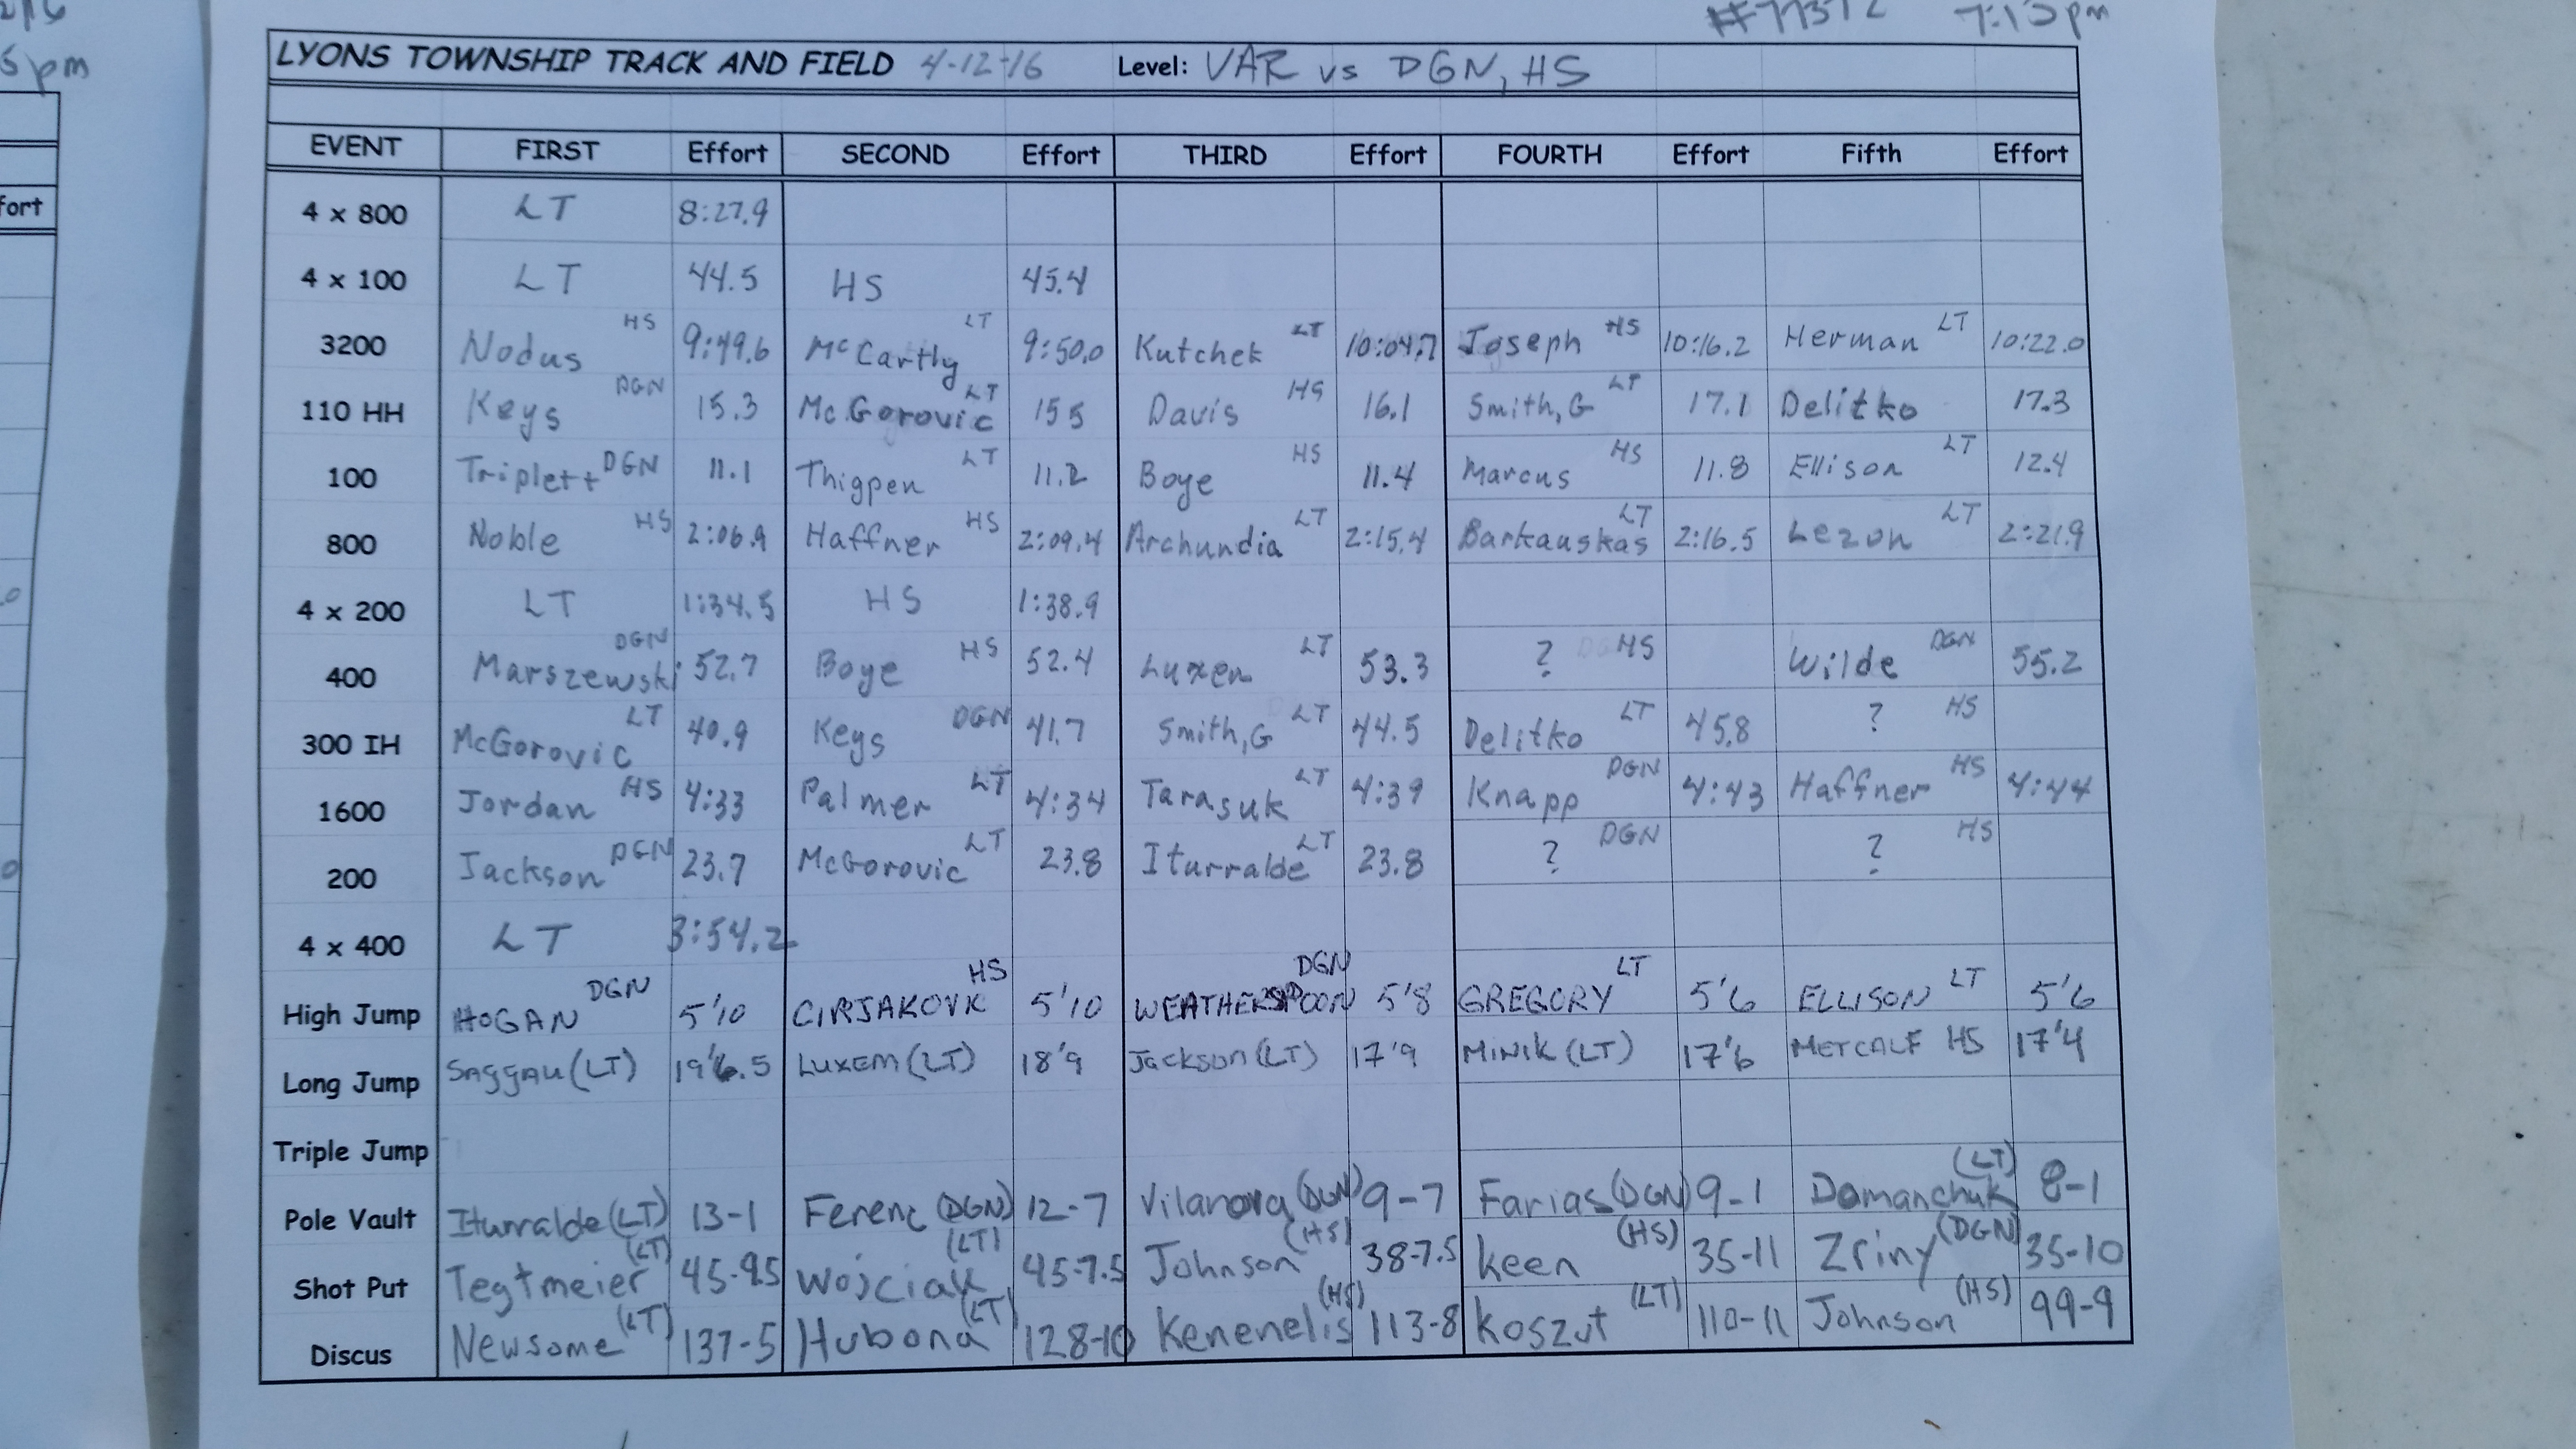 5pm
#77372 7:15pm
LYONS TOWNSHIP TRACK AND FIELD 4-12-16 Level: VAR vs DGN, HS
fort
EVENT FIRST Effort SECOND Effort THIRD Effort FOURTH Effort Fifth Effort
4 x 800 LT 8:27.9
4 x 100 LT 44.5 HS 45.4
3200 Nodus HS 9:49.6 McCarthy LT 9:50.0 Kutchek LT 10:04.7 Joseph HS 10:16.2 Herman LT 10:22.0
110 HH Keys DGN 15.3 McGorovic LT 155 Davis HS 16.1 Smith, G LT 17.1 Delitko 17.3
100 Triplett DGN 11.1 Thigpen LT 11.2 Boye HS 11.4 Marcus HS 11.8 Ellison LT 12.4
800 Noble HS 2:06.9 Haffner HS 2:09.4 Archundia LT 2:15.4 Barkauskas LT 2:16.5 Lezon LT 2:21.9
4 x 200 LT 1:34.5 HS 1:38.9
400 Marszewski DGN 52.7 Boye HS 52.4 Luxem LT 53.3 ? HS Wilde DGN 55.2
300 IH McGorovic LT 40.9 Keys DGN 41.7 Smith, G LT 44.5 Delitko LT 45.8 ? HS
1600 Jordan HS 4:33 Palmer LT 4:34 Tarasuk LT 4:39 Knapp DGN 4:43 Haffner HS 4:44
200 Jackson DGN 23.7 McGorovic LT 23.8 Iturralde LT 23.8 ? DGN ? HS
4 x 400 LT 3:54.2
High Jump HOGAN DGN 5'10 CIRJAKOVK HS 5'10 WEATHERSPOON DGN 5'8 GREGORY LT 5'6 ELLISON LT 5'6
Long Jump SAGGAU (LT) 19'6.5 LUXEM (LT) 18'9 Jackson (LT) 17'9 MINIK (LT) 17'6 METCALF HS 17'4
Triple Jump
Pole Vault Iturralde (LT) 13-1 Ferenc (DGN) 12-7 Vilanova (DGN) 9-7 Farias (DGN) 9-1 Domanchuk (LT) 8-1
Shot Put Tegtmeier (LT) 45-9.5 Wojciak (LT) 45-7.5 Johnson (HS) 38-7.5 Keen (HS) 35-11 Zriny (DGN) 35-10
Discus Newsome (LT) 137-5 Hubona (LT) 128-10 Kenenelis (HS) 113-8 Koszut (LT) 110-11 Johnson (HS) 99-9